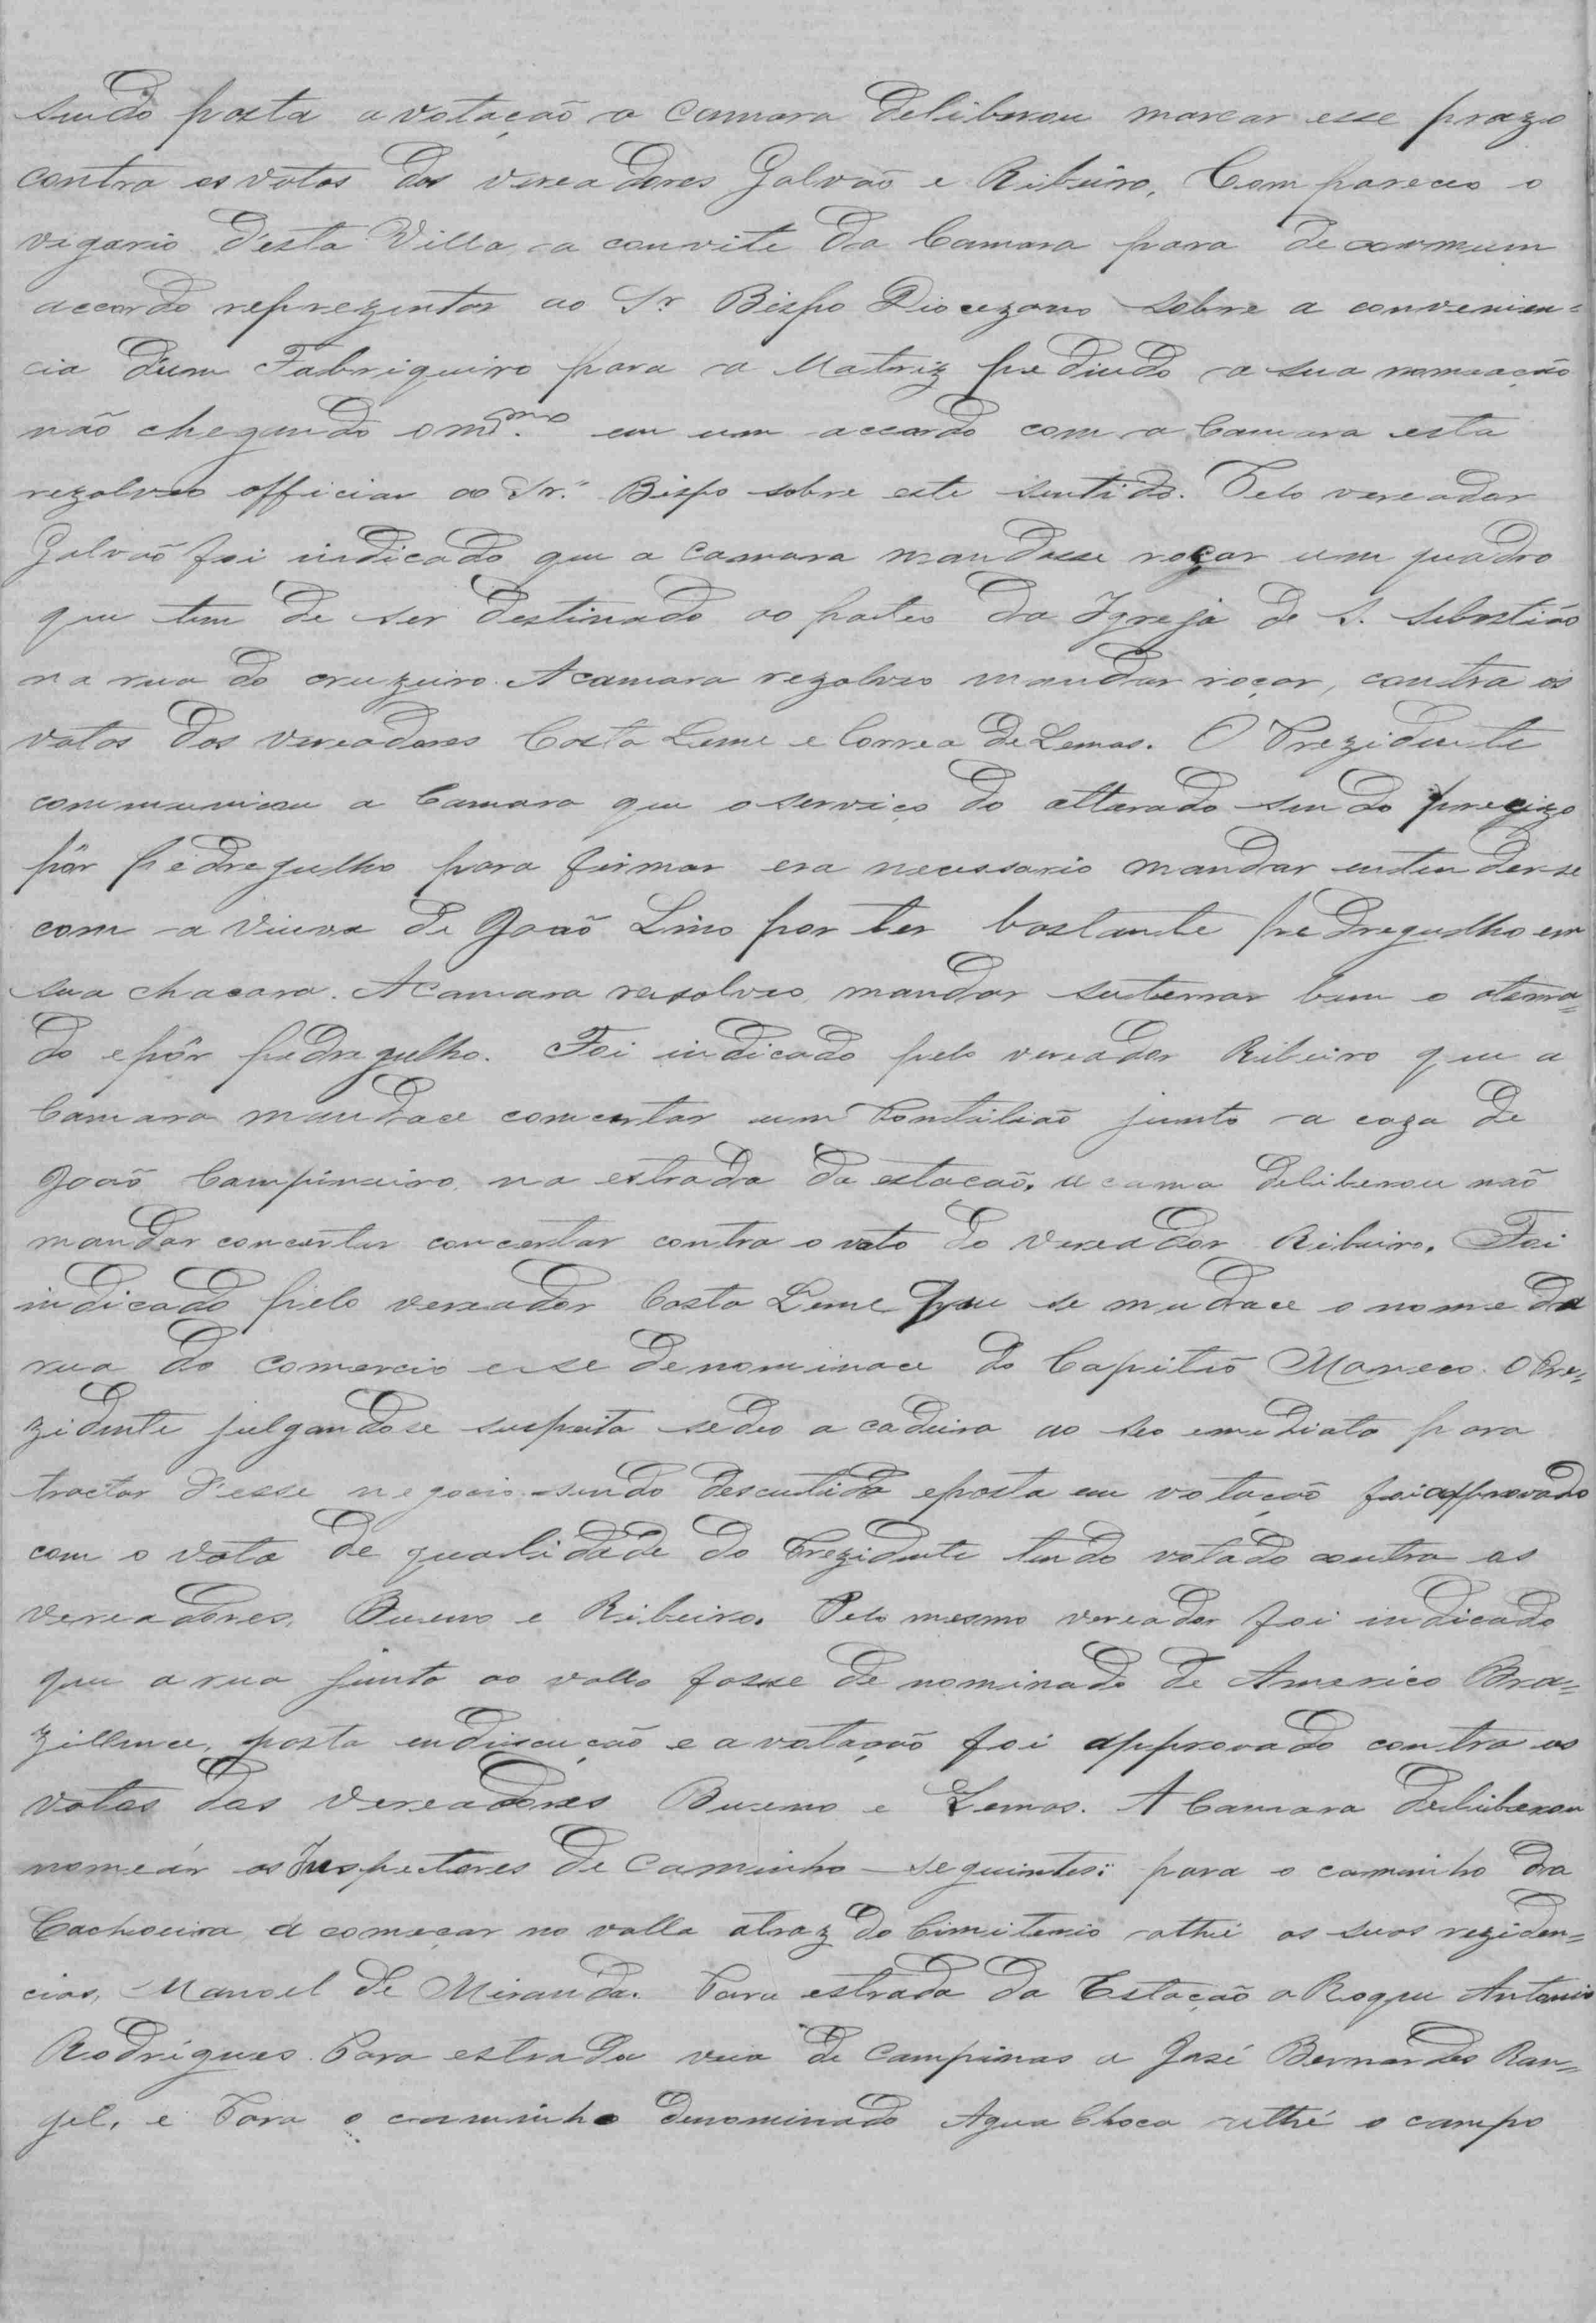 sendo posta a votação a camara deliberou marcar esse prazo
contra os votos dos vereadores Galvão e Ribeiro, Compareceo o
vigario d'esta Villa a convite da Camara para de commum
accordo reprezentar ao Sr. Bispo Diocezano sobre a convenien=
cia d'um Fabriqueiro para a Matriz pedindo a sua nomeação
não chegando o m.mo em um accordo com a Camara esta
rezolveo officiar ao Sr. Bispo sobre este sentido. Pelo vereador
Galvão foi indicado que a camara mandasse roçar um quadro
que tem de ser destinado ao pateo da Igreja de S. Sebastião
na rua do cruzeiro. A camara rezolveo mandar roçar, contra os
votos dos vereadores Costa Leme e Correa de Lemos. O Prezidente
communicou a Camara que o serviço do atterado sendo precizo
pôr pedregulho para firmar era necessario mandar entender-se
com a viuva de João Lino por ter bastante pedregulho em
sua chacara. A camara resolveo mandar soterrar bem o aterra=
do e pôr pedregulho. Foi indicado pelo vereador Ribeiro que a
Camara mandace concertar um Pontilhão junto a caza de
João Campineiro na estrada da estação. a cama deliberou não
mandar concertar concertar contra o voto do vereador Ribeiro. Foi
indicado pelo vereador Costa Leme que se mudace o nome da
rua do comercio e se denominace do Capitão Maneco. O Pre=
zidente julgandose suspeito sedeo a cadeira ao seo emediato para
tractar d'esse negocio sendo descutida e posta em votação foi approvado
com o voto de qualidade do Prezidente tendo votado contra os
vereadores, Bueno e Ribeiro. Pelo mesmo vereador foi indicado
que a rua junto ao vallo fosse denominado de Americo Bra=
zillence, posta endiscução e a votação foi approvado contra os
votos dos vereadores Bueno e Lemos. A Camara deliberou
nomeár os Inspectores de caminho seguintes: para o caminho da
Cachoeira á começar no vallo atraz do Cimiterio athé as suas reziden=
cias, Manoel de Miranda. Para estrada da Estação a Roque Antonio
Rodrigues. Para estrada de Campinas a José Bernardes Ran=
gel, e Para o caminho denominado Agua Choca athé o campo